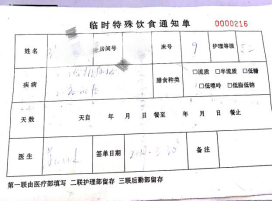 临时特殊饮食通知单 0000216
姓名 房间号 床号 9 护理等级
疾病 膳食种类 □流质 □半流质 □低糖
□低嘌呤 □低脂低钠
天数 天自 年 月 日 餐至 年 月 日 餐止
医生 签单日期 备注
第一联由医疗部填写 二联护理部留存 三联后勤部留存